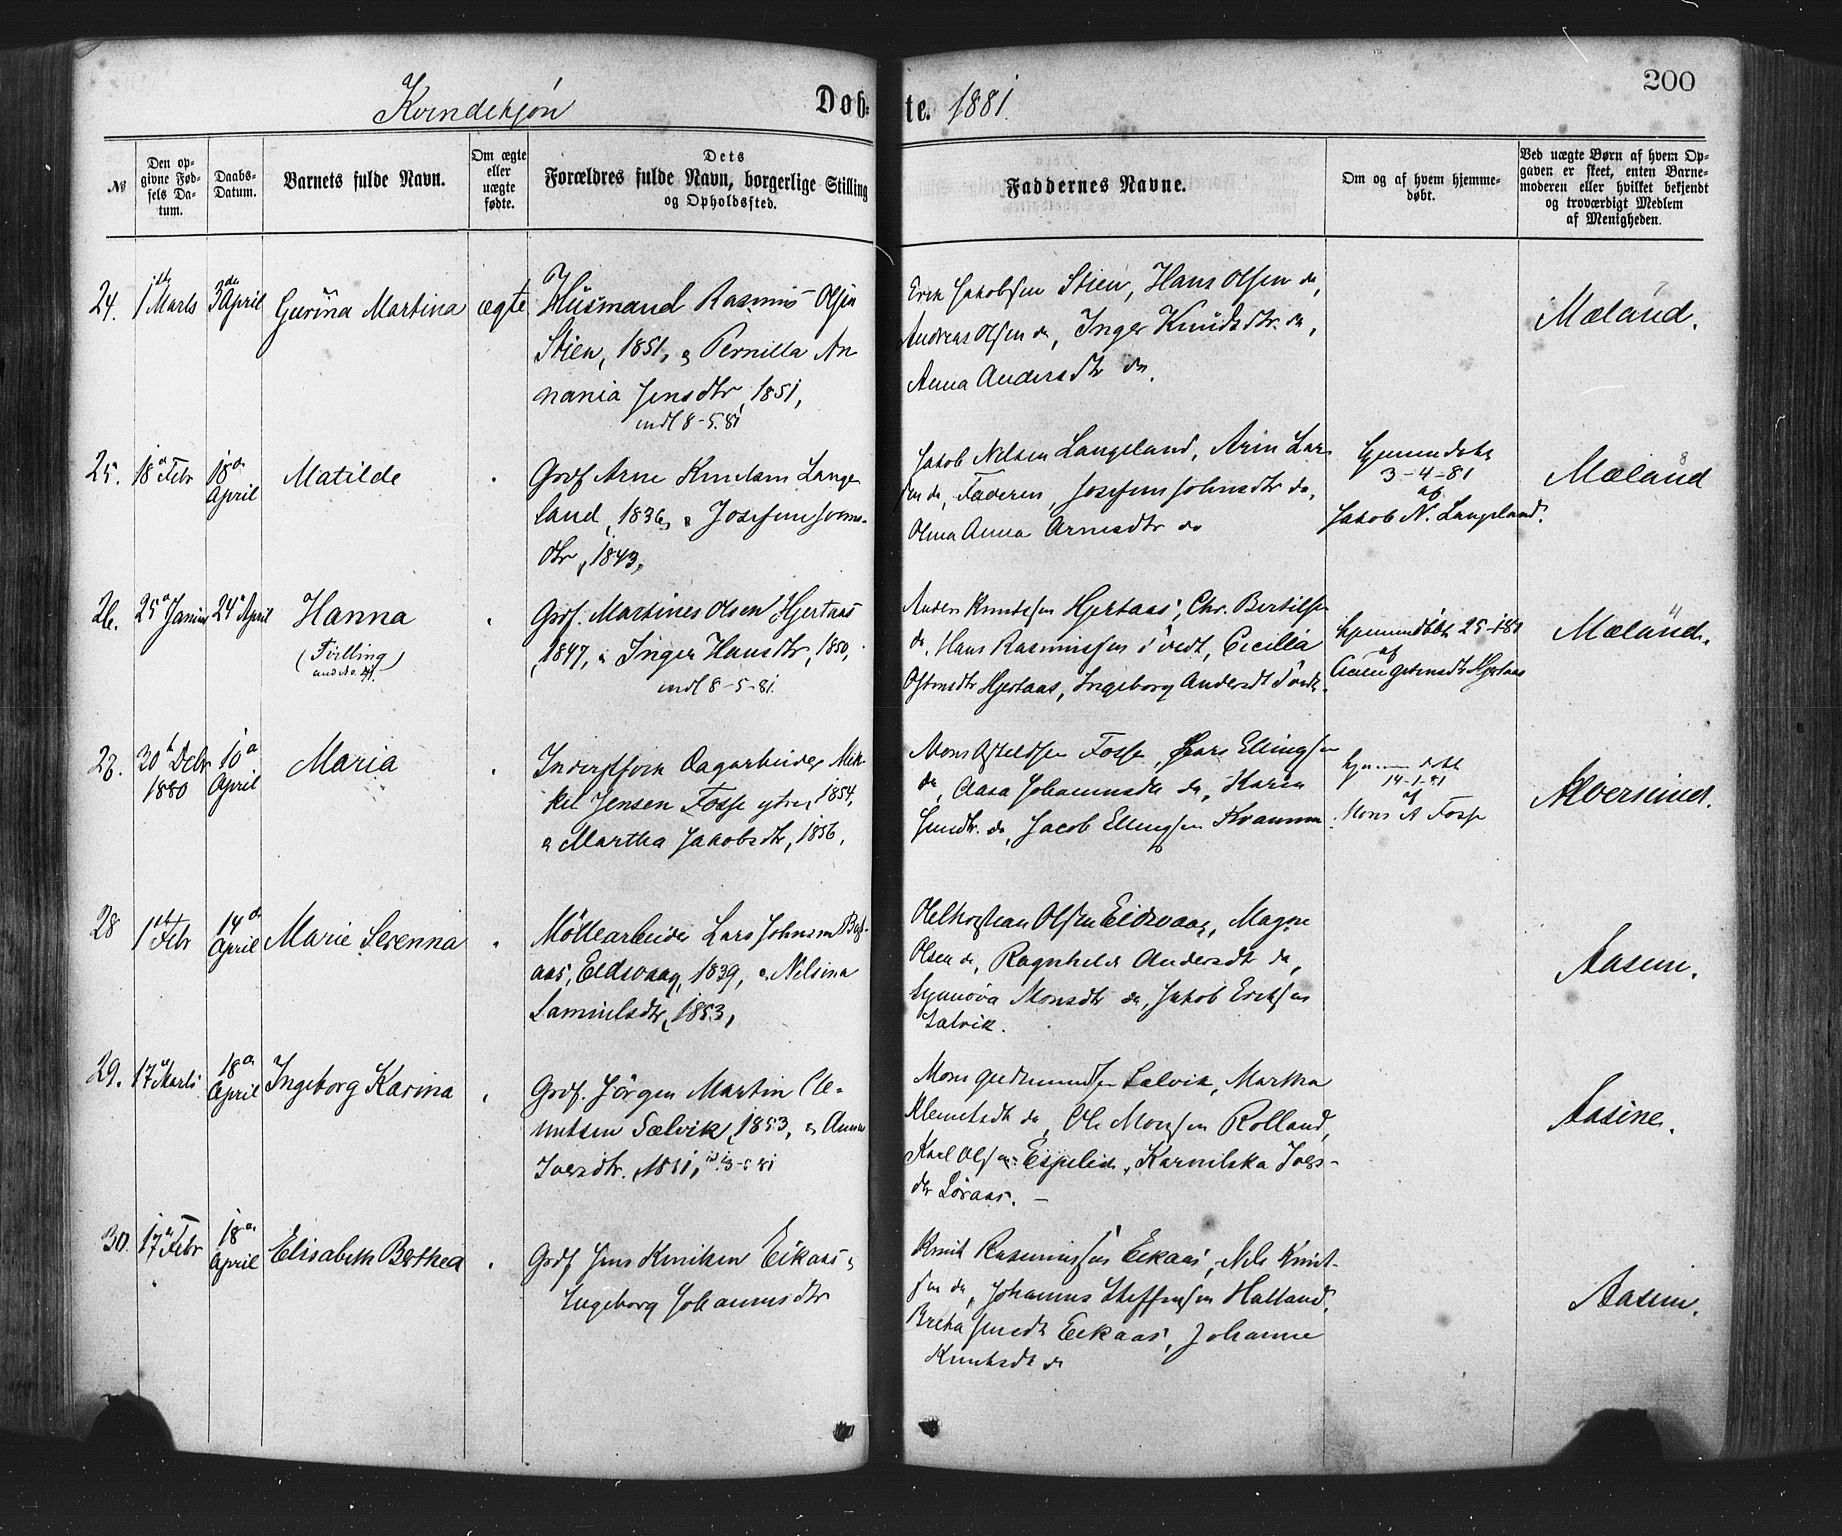 200
Kvindekjøn Døb- te. 1881.
№ Den opgivne Fødsels Datum. Daabs-Datum. Barnets fulde Navn. Om ægte eller uægte fødte. Dets Forældres fulde Navn, borgerlige Stilling og Opholdssted. Faddernes Navne. Om og af hvem hjemmedøbt. Ved uægte Børn af hvem Opgaven er skeet, enten Barnemoderen eller hvilket bekjendt og troværdigt Medlem af Menigheden.
24. 1 Marts 3 April Gurina Martina ægte Husmand Rasmus Olsen
Stien, 1851, & Pernilla An-
nania Jensdtr, 1851,
indl 8-5.81
Erik Jakobsen Stien, Hans Olsen do,
Andreas Olsen do, Inger Knudsdtr. do,
Anna Andersdtr do.
Mæland.
25. 18 Febr 18 April Matilde Grdf Arne Knudsen Lange
land, 1836, & Josefine
dtr, 1843,
Jakob Nelsen Langeland, Arin Lar-
sen do, Faderen, Josefine Johnsdtr do,
Olina Anna Arnesdtr do
3-4-81
af
Jakob N. Langeland.
Mæland
26. 25 Januar 24 April Hanna
(Tvilling)
Grdf. Martines Olsen Hjertaas
1847, & Inger Hansdtr, 1850,
indl 8-5-81
Anders Knutsen Hjertaas, Chr. Bertilsen
do, Hans Rasmussen Tvedt, Cecilia
Hjertaas, Ingeborg Andersdt Tvedt.
af
Hjertaas
Mæland.
27. 30 Debr 1880 10 April Maria
Dagarbeider Mik-
kel Jensen Fosse ytre, 1854,
& Martha Jakobsdtr, 1856.
Mons Fosse, Lars Ellingsen
do, Johannesdtr do, Karen
do, Jacob Ellingsen Kvamme
14-1-81
af
Mons A Fosse
Alversund.
28 1 Febr 14 April Marie Serenna
Möllearbeider Lars Johnsen
aas, Eidsvaag, 1839, & Nelsina
Samuelsdtr, 1853,
Olsen Eidsvaag, Magne
Olsen do, Ragnhilde Andersdt do,
Synnöva Monsdtr do, Jakob Eriksen
Salvik.
Aasen.
29. 17 Marts 18 April Ingeborg Karina
Grdf. Jörgen Martin Cle-
mutsen Sælvik, 1853, & Anna
Iversdtr.
Mons Gudmundsen Salvik, Martha
Klemetsdt do, Ole Monsen Rolland,
Karl Olsen Espelid, Karnilska Ivers-
dtr Söraas. –
Aasene.
30. 17 Febr 18 April Elisabeth Berthea
Grdf Jens Knutsen Eikaas &
Ingeborg Johannesdtr
Knut Rasmussen Eikaas, Nils Knut-
sen do, Johannes Steffensen Halland,
Eikaas, Johanne
Knutsdt do
Aasen.